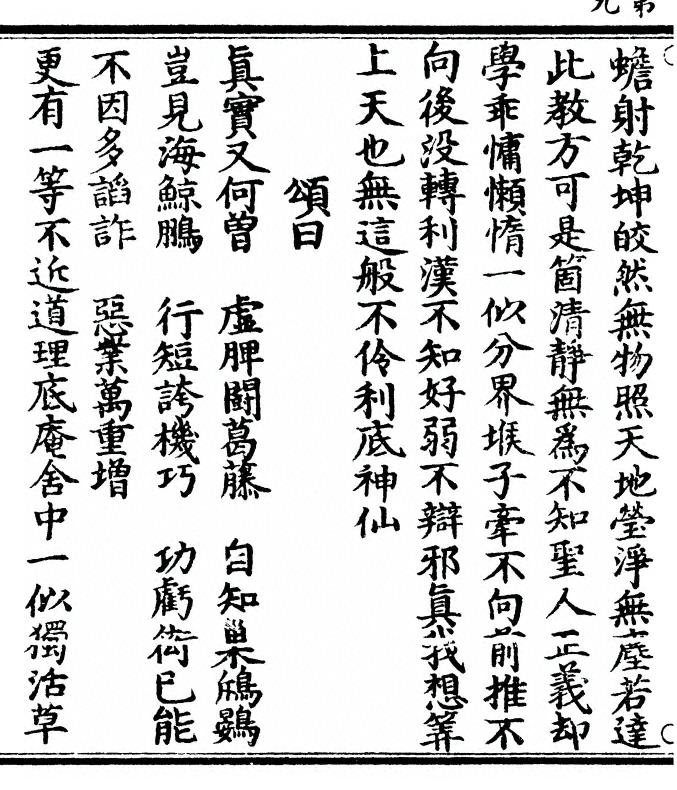 蟾射乾坤皎然無物照天地瑩淨無塵若達
此教方可是箇清靜無爲不知聖人正義却
學乖慵懶惰一似分界堠子牽不向前推不
向後没轉利漢不知好弱不辯邪眞我想筭
上天也無這般不伶利底神仙
頌曰
眞實又何曽　虛脾鬪葛藤　自知巢鴳鷃
豈見海鯨鵬　行短誇機巧　功虧衒已能
不因多謟詐　惡業萬重增
更有一等不近道理底庵舍中一似獨活草